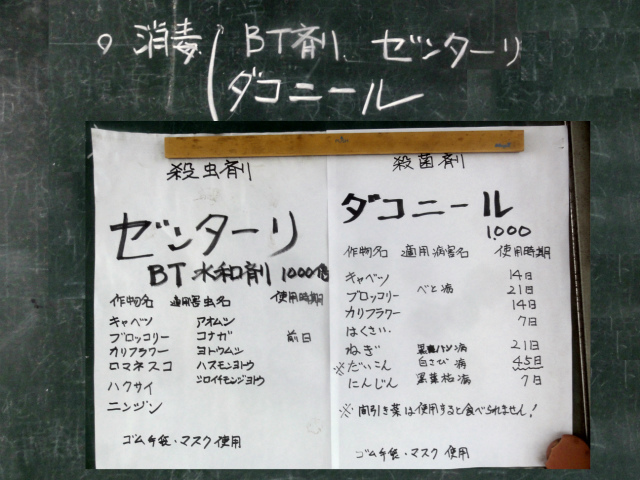 ○ 消毒 BT剤 ゼンターリ
ダコニール
殺虫剤
ゼンターリ
BT水和剤 1000倍
作物名 適用害虫名 使用時期
キャベツ アオムシ
ブロッコリー コナガ 前日
カリフラワー ヨトウムシ
ロマネスコ ハスモンヨトウ
ハクサイ シロイチモンジヨトウ
ニンジン
ゴム手袋・マスク使用
殺菌剤
ダコニール
1000
作物名 適用病害名 使用時期
キャベツ 14日
ブロッコリー べと病 21日
カリフラワー 14日
はくさい 7日
ねぎ 病 21日
※だいこん 白さび病 45日
にんじん 黒葉枯病 7日
※間引き菜は使用すると食べられません!
ゴム手袋・マスク使用